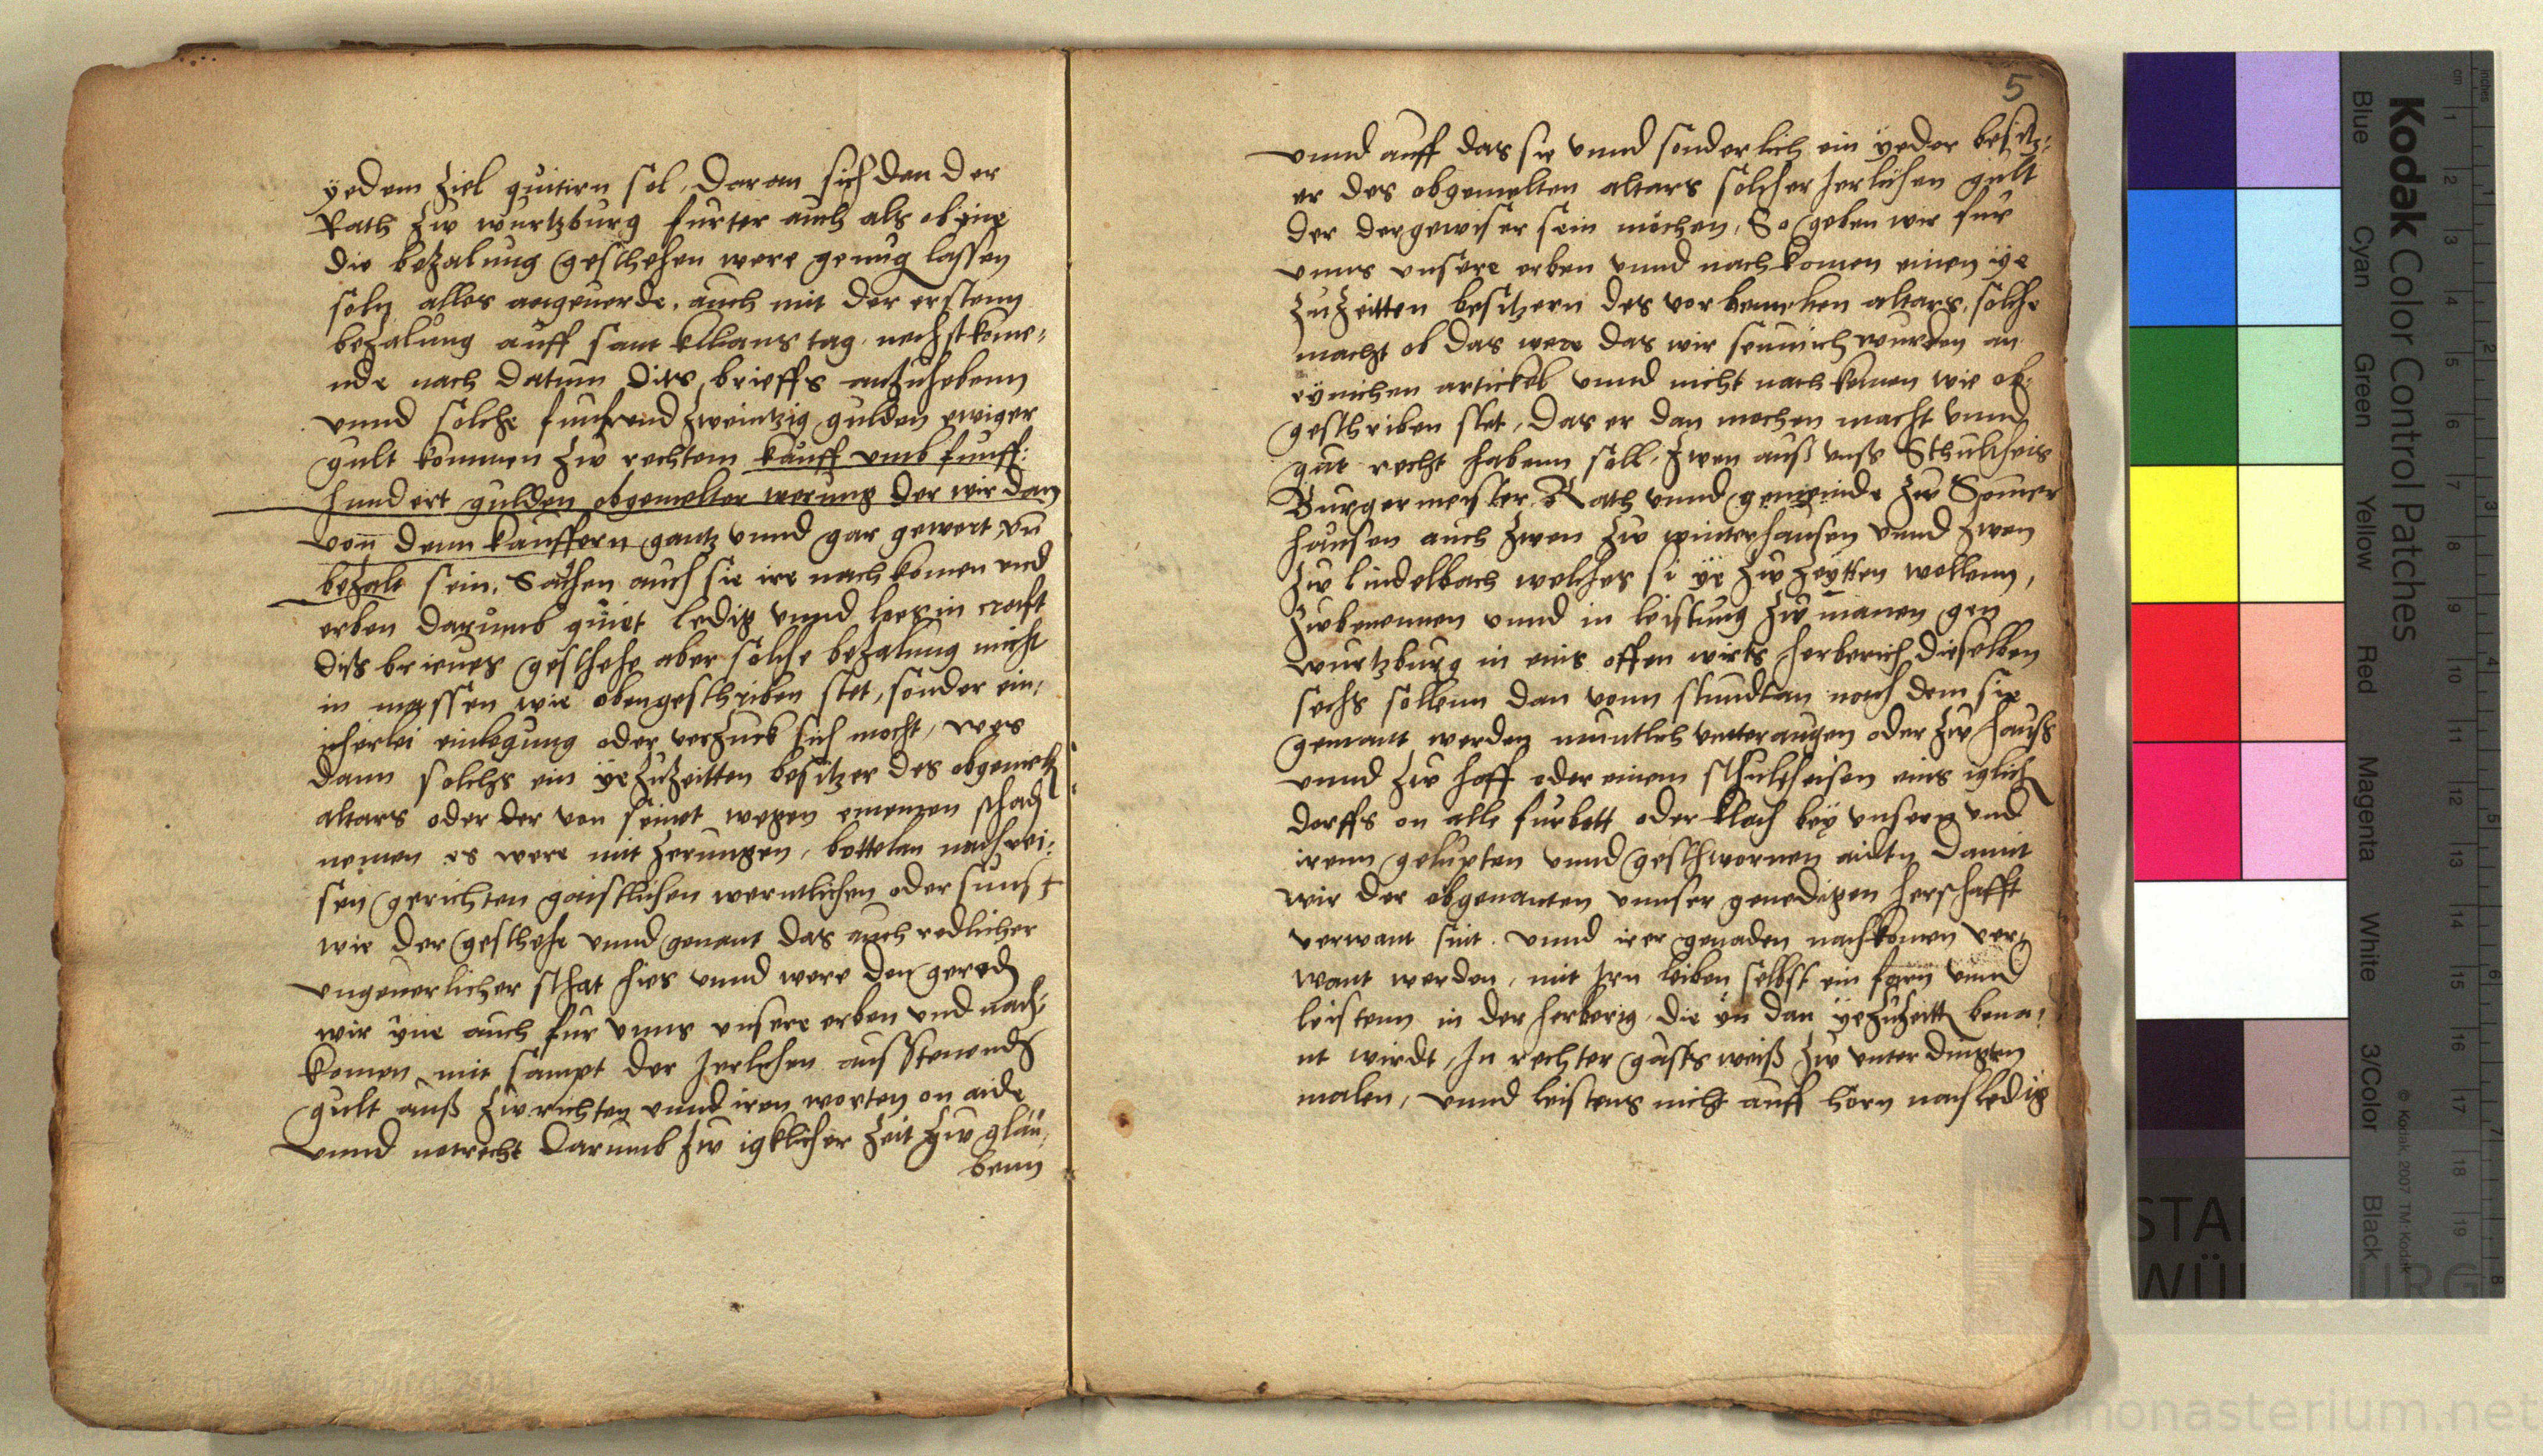 yedem Ziel quitirn sol, daran sich den der
Rath zw wurtzburg furter auch als ob yne
die bezalung geschehen were genug lassen
soln alles angeuerde. auch mit der erstenn
bezalung auff sant kilians tag nechstkome¬
nde nach datum dits brieffs antzuhebenn
vnnd solche funfvnd zweintzig gulden ewiger
gult kommen zw rechtem kauff vmb funff:
hundert gulden obgemelter werung der wir dan
von denn kauffern gantz vnnd gar gewert vn
bezalt sein. Sachen auch sie ire nachkomen vnd
erben darumb quiet ledig vnnd lees in craft
diss brieues geschehe aber solche bezalung nicht
in massen wie obengeschriben stet, sonder ein¬
icherlei einlegung oder verzuck sich mocht, wes
dann solchs ein ye zuzeitten besitzer des obgemelt
altars oder der von seinet wegen schad
nemen es were mit zerungen, bottelan nachrei¬
sen gerichten gaistlichen werntlichen oder sunst
wie der geschehe vnnd genant das auch redlicher
vngeuerlicher schat hies vnnd were den gered
wir yne auch fur vnns vnsere erben vnd nach¬
komen mit sampt der Jerlichen ausstenend
gult auß zw richten vnnd iren worten on aide
vnnd notrecht darumb zw igklicher zeit zw glau¬
benn
5
vnnd auff das sie vnnd sonderlich ein yeder besitz¬
er des obgemelten altars solcher Jerlichen gult
der dergewiser sein mochen, So geben wir fur
vnns vnsere erben vnnd nachkomen einen ye
zuzeitten besitzern des vorbemelten altars, solche
macht ob das were das wir seumich wurden an
eynichen artickel vnnd nicht nach komen wie ob¬
geschriben stet, das er dan mochen macht vnnd
gut recht habenn soll, zwen auß vnß Schultheis
Burgermeister Rath vnnd gemeinde zw Somer
hausen auch zwen zw winterhausen vnnd zwen
zw lindelbach welches si ye zw zeytten wollenn,
zwbenennen vnnd in leistung zw manen gen
wurtzburg in eins offen wirts herberich dieselben
sechs sollenn dan vonn stundtan nach dem sie
gemant werden muntlich vnter augen oder zw hauß
vnnd zw hoff oder einem schultheisen eins iglich
dorffs on alle furbott oder klach bey vnsern vnd
irenn gelupten vnnd geschwornen aidtn damit
wir der obgenanten vnnser genedigen herschafft
verwant sint. vnnd irer genaden nachkomen ver¬
want werden, mit Jrn leiben selbst ein farn vnnd
leistenn in der herberig, die yn dan ye zuzeitt bena¬
nt wirdt, In rechter gasts weiß zw vnter dingten
malen, vnnd leistens nicht auff horn nach ledig
Kodak Color Control Patches
Blue Cyan Green Yellow Red Magenta White 3/Color Black
© Kodak, 2007 TM: Kodak
cm 1 2 3 4 5 6 7 8 9 10 11 12 13 14 15 16 17 18 19
inches 1 2 3 4 5 6 7 8
monasterium.net